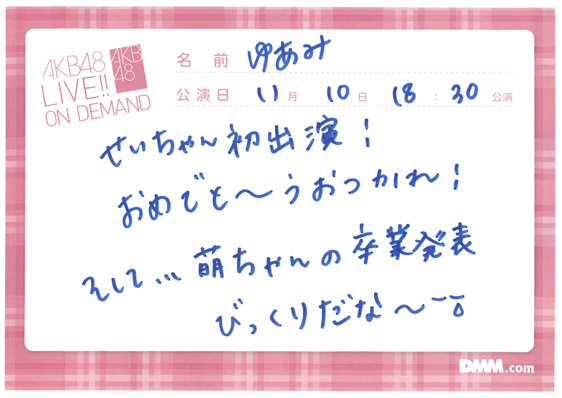 AKB48
LIVE!!
ON DEMAND
AKB
48
名前 ゆあみ
公演日 11月 10日 18:30公演
せいちゃん初出演!
おめでと〜うおつかれ!
そして... 萌ちゃんの卒業発表
びっくりだな〜
DMM.com